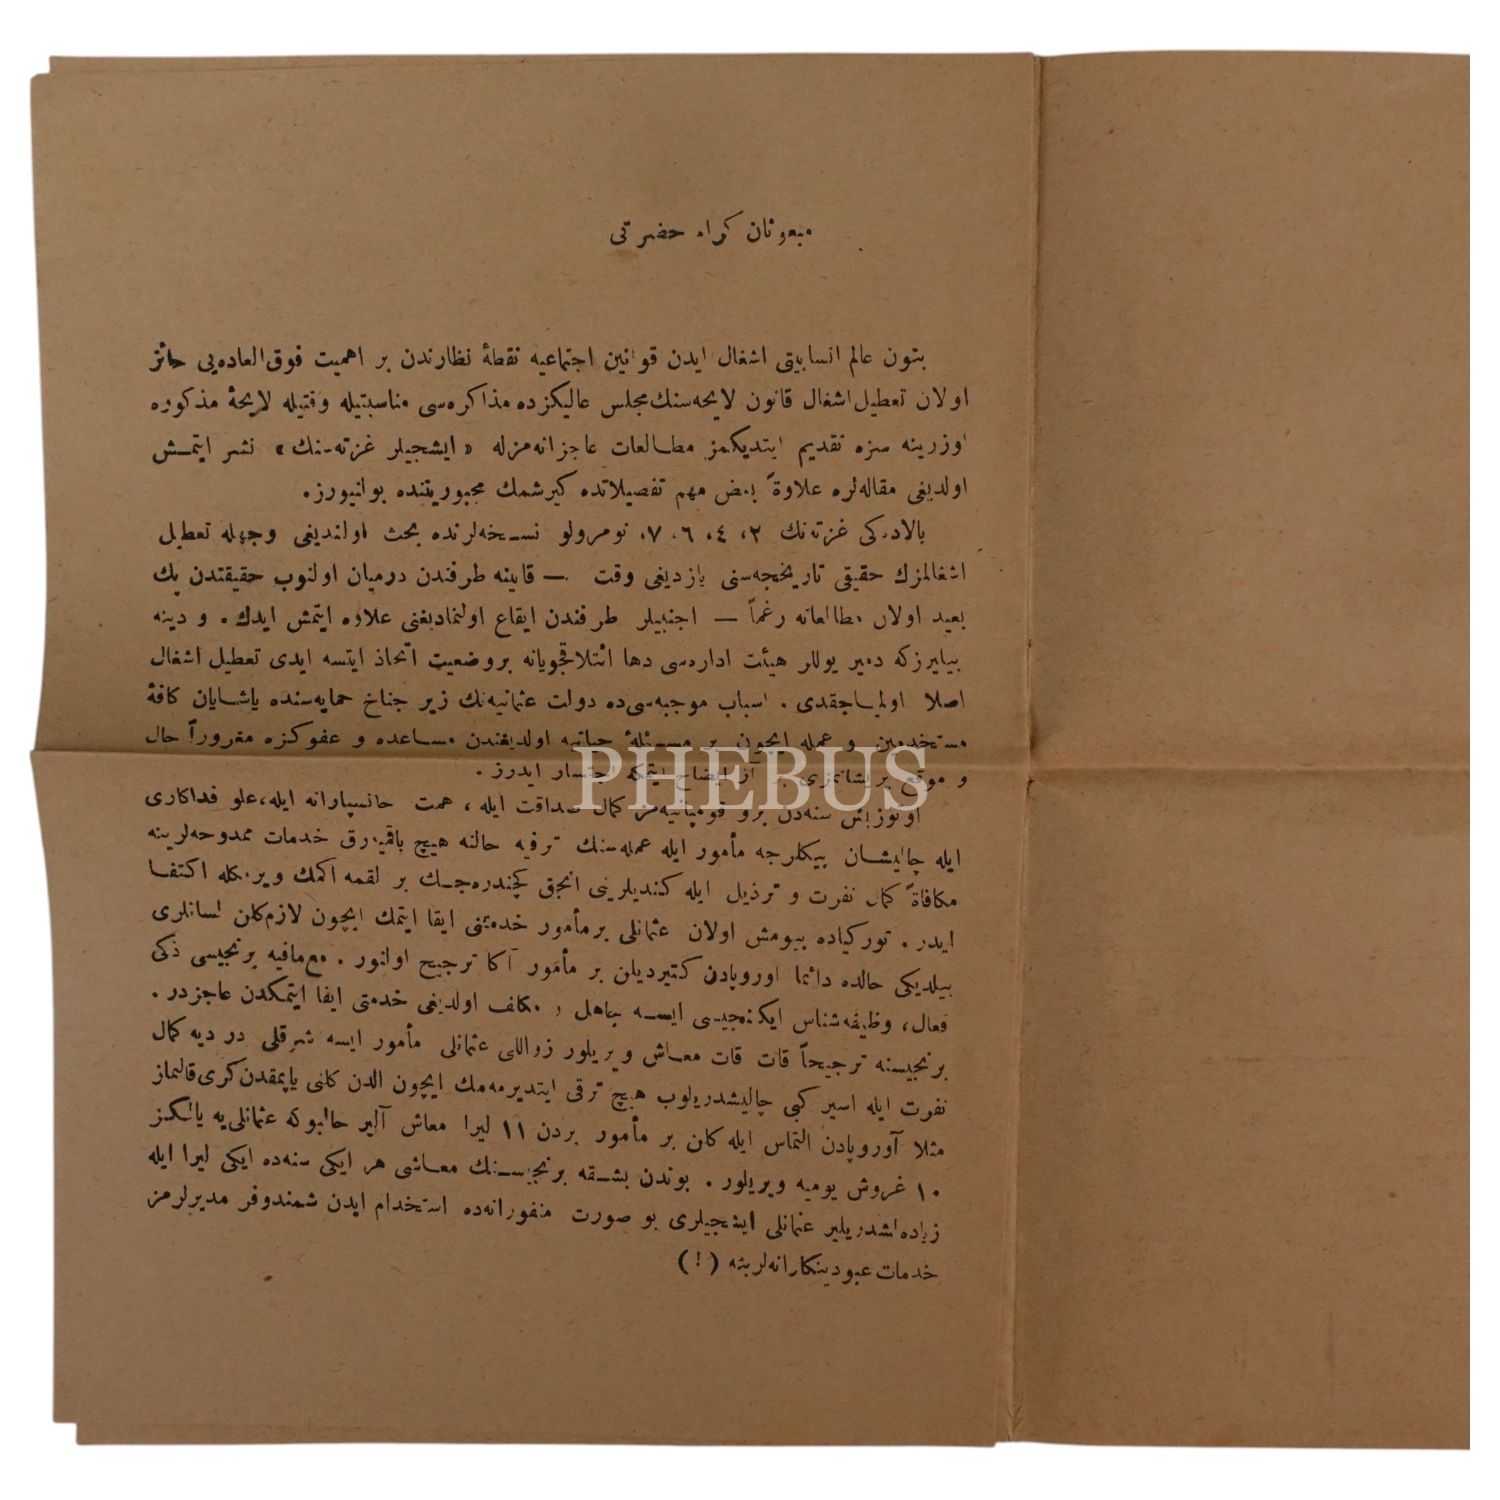 مبعوثان كرام حضرتى
بتون عالم انسانيتى اشغال ايدن قوانين اجتماعيه نقطهٔ نظارندن بر اهميت فوق‌العاده‌يى حائز
اولان تعطيل اشغال قانون لايحه‌سنك مجلس عاليكزده مذاكره‌سى مناسبتيله وقتيله لايحهٔ مذكوره
اوزرينه سزه تقديم ايتديكمز مطالعات عاجزانه‌مزله «ايشجيلر غزته‌سنك» نشر ايتمش
اولديغى مقاله‌لره علاوةً بعض مهم تفصيلاتده كيرشمك مجبوريتنده بولنيورز.
بالاده‌كى غزته‌نك ٢، ٤، ٦، ٧، نومرولو نسخه‌لرنده بحث اولنديغى وجهله تعطيل
اشغالمزك حقيقى تاريخچه‌سنى يازديغى وقت — قابينه طرفندن درميان اولنوب حقيقتدن پك
بعيد اولان مطالعاته رغماً — اجنبيلر طرفندن ايقاع اولنماديغنى علاوه ايتمش ايدك. و دينه
بيليرزكه دمير يوللر هيئت اداره‌سى دها ائتلافجويانه بر وضعيت اتخاذ ايتسه ايدى تعطيل اشغال
اصلا اولمياجقدى. اسباب موجبه‌سى‌ده دولت عثمانيه‌نك زير جناح حمايه‌سنده ياشايان كافهٔ
مستخدمين و عمله ايچون بر مسئلهٔ حياتيه اولديغندن مساعده و عفوكزه مغروراً حال
و موقع پريشانمزى بر آز ايضاح ايتمكه جتسار ايدرز.
اوتوز بش سنه‌دن برو قومپانيه‌مزه كمال صداقت ايله، همت جانسپارانه ايله، علو فداكارى
ايله چاليشان بيكلرجه مأمور ايله عمله‌سنك ترفيه حالنه هيچ باقميه‌رق خدمات ممدوحه‌لرينه
مكافاةً كمال نفرت و ترذيل ايله كنديلرينى انجق كچندره‌جك بر لقمه اكمك ويرمكله اكتفا
ايدر. توركياده بيومش اولان عثمانلى بر مأمور خدمتنى ايفا ايتمك ايچون لازم‌كلن لسانلرى
بيلديكى حالده دائما اوروپادن كتيرديلن بر مأمور آكا ترجيح اولنور. مع‌مافيه برنجيسى ذكى
فعال، وظيفه‌شناس ايكنجيسى ايسه جاهل و مكلف اولديغى خدمتى ايفا ايتمكدن عاجزدر.
برنجيسنه ترجيحاً قات قات معاش ويريلور زواللى عثمانلى مأمور ايسه شرقلى در ديه كمال
نفرت ايله اسير كبى چاليشدريلوب هيچ ترقى ايتديرمه‌مك ايچون الدن كلنى ياپمقدن كرى قالنماز
مثلا آوروپادن التماس ايله كلن بر مأمور بردن ١١ ليرا معاش آلير حالبوكه عثمانلى‌يه يالكز
١٠ غروش يوميه ويريلور. بوندن بشقه برنجيسنك معاشى هر ايكى سنه‌ده ايكى ليرا ايله
زياده‌لشديريلير عثمانلى ايشجيلرى بو صورت منفورانه‌ده استخدام ايدن شمندوفر مديرلرمز
خدمات عبوديتكارانه‌لرينه (!)
PHEBUS